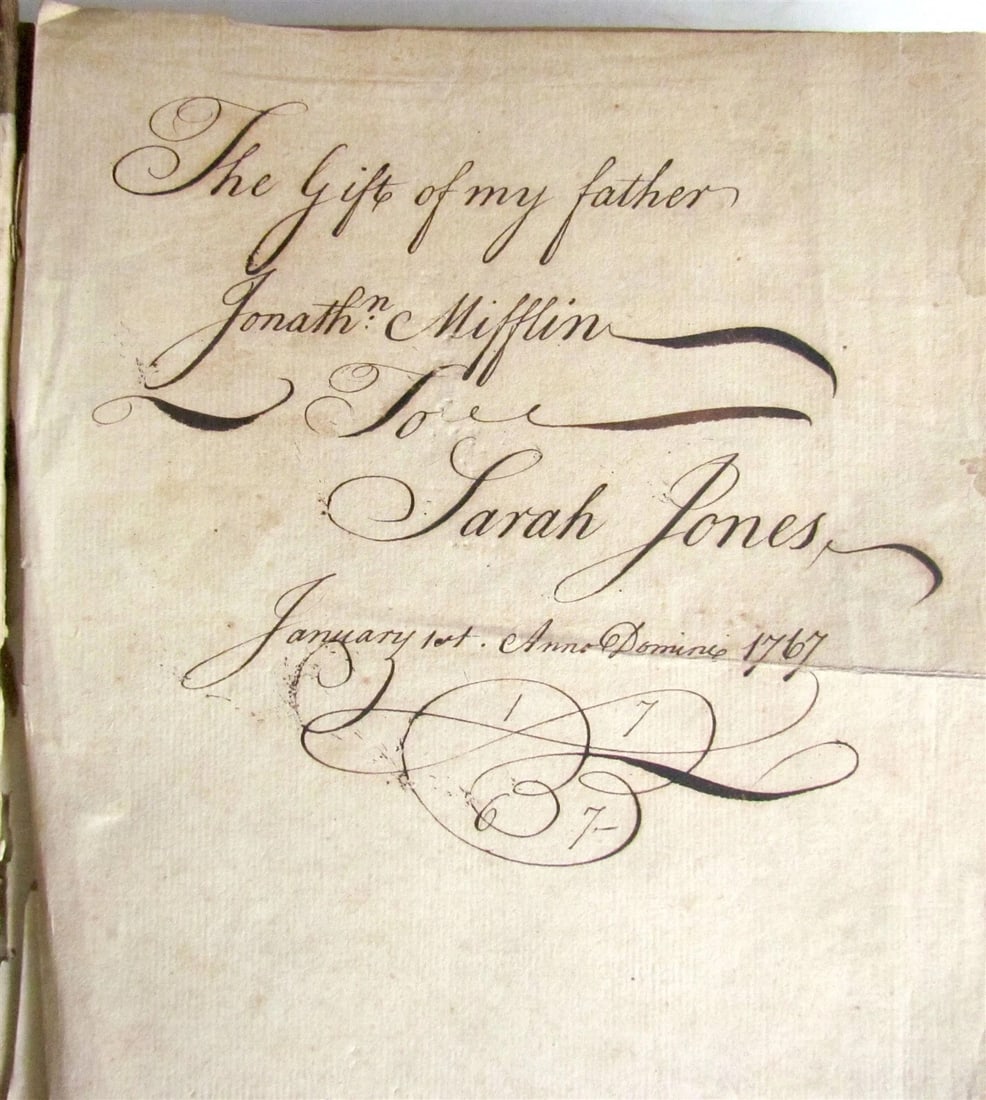 The Gift of my father
Jonath:ⁿ Mifflin
To
Sarah Jones,
January 1st. Anno Domini 1767
1 7
6 7-